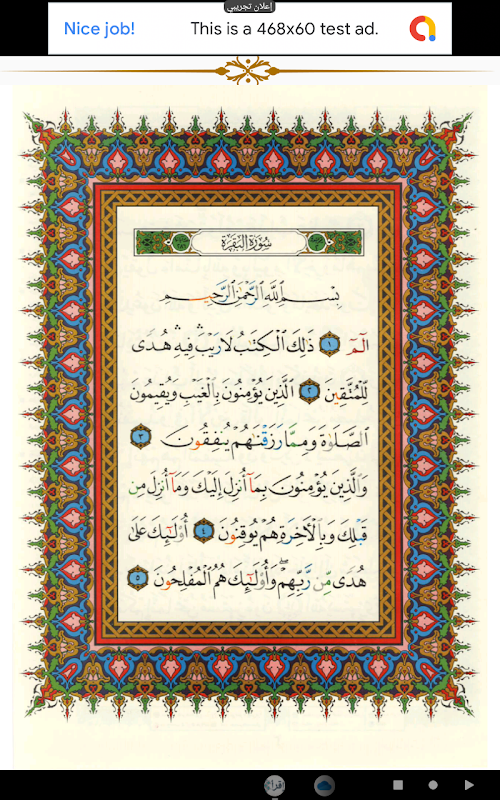 إعلان تجريبي
Nice job! This is a 468x60 test ad.
سُورَةُ البَقَرَةِ
بِسْمِ ٱللَّهِ ٱلرَّحْمَٰنِ ٱلرَّحِيمِ
الٓمٓ ١ ذَٰلِكَ ٱلْكِتَٰبُ لَا رَيْبَ ۛ فِيهِ ۛ هُدًى
لِّلْمُتَّقِينَ ٢ ٱلَّذِينَ يُؤْمِنُونَ بِٱلْغَيْبِ وَيُقِيمُونَ
ٱلصَّلَوٰةَ وَمِمَّا رَزَقْنَٰهُمْ يُنفِقُونَ ٣
وَٱلَّذِينَ يُؤْمِنُونَ بِمَآ أُنزِلَ إِلَيْكَ وَمَآ أُنزِلَ مِن
قَبْلِكَ وَبِٱلْأَخِرَةِ هُمْ يُوقِنُونَ ٤ أُو۟لَٰٓئِكَ عَلَىٰ
هُدًى مِّن رَّبِّهِمْ ۖ وَأُو۟لَٰٓئِكَ هُمُ ٱلْمُفْلِحُونَ ٥
اقرأ